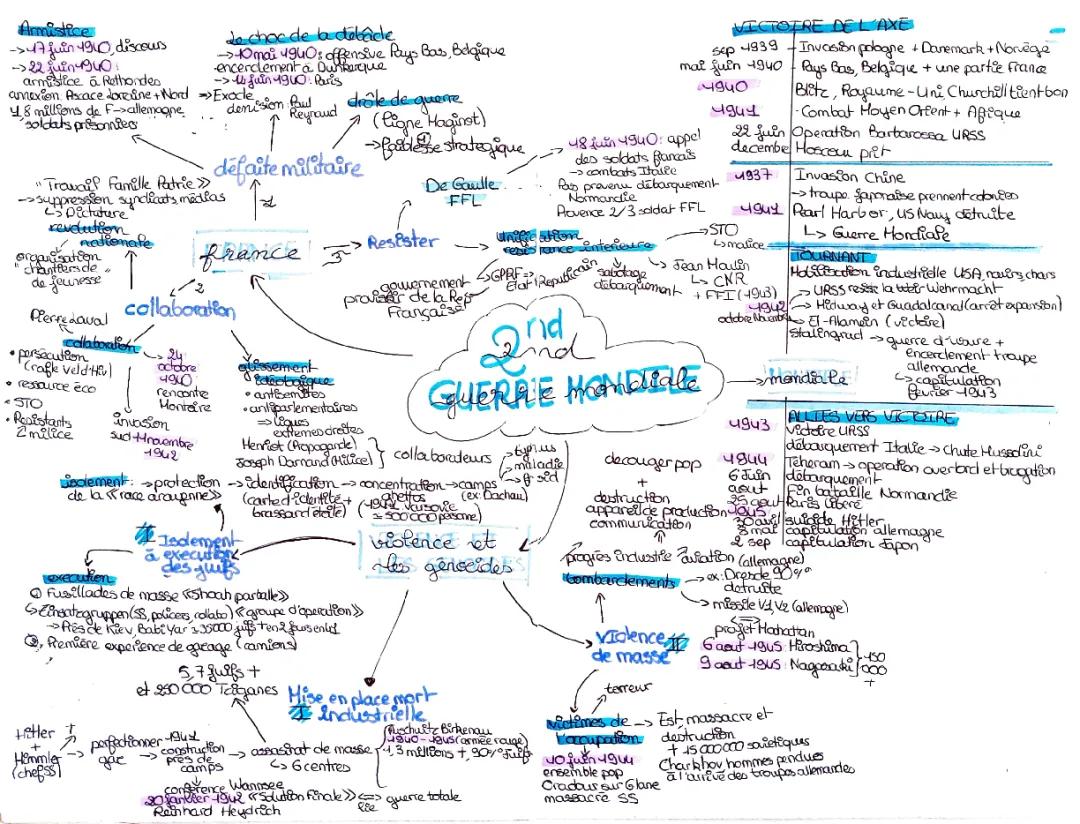 Armistice
→ 17 juin 1940, discours
→ 22 juin 1940 :
armistice à Rethondes
annexion Alsace Loraine + Nord
1,8 millions de F → allemagne
soldats prisonniers
Le choc de la débâcle
→ 10 mai 1940 : offensive Pays Bas, Belgique
encerclement à Dunkerque
→ 14 juin 1940 : Paris
⇒ Exode
demission Paul
Reynaud
drôle de guerre
(Ligne Maginot)
→ faiblesse strategique
défaite militaire
1
"Travail Famille Patrie »
→ suppression syndicats, médias
↳ Dictature
revolution
nationale
organisation
"chantiers de
jeunesse"
france
2
3
collaboration
Pierre Laval
collaboration
• persécution
(rafle veld-Hiv)
• ressource éco
• STO
• Resistants
≠ milice
→ 24
octobre
1940
rencontre
Montoire
invasion
sud 11 novembre
1942
glissement
idéologique
• antisémites
• antiparlementaires
⇒ Ligues
extremes droites
Henriot (Propagande)
Joseph Darnand (Milice)
collaborateurs
Resister
De Gaulle
FFL
→ 18 juin 1940 : appel
des soldats français
→ combats Italie
Pas prevenu débarquement
Normandie
Provence 2/3 soldat FFL
Unification
resistance interieure
→ STO
↳ maison
gouvernement
provisoir de la Rep
Française
GPRF ⇒
Etat Republicain
sabotage
débarquement
Jean Moulin
↳ CNR
+ FFI (1943)
2nd
2nd
GUERRE MONDIALE
guerre mondiale
mondiale
VICTOIRE DE L'AXE
sep 1939 Invasion pologne + Danemark + Norvège
mai juin 1940 Pays Bas, Belgique + une partie France
1940 Blitz, Royaume-Uni, Churchill tient bon
1941 Combat Moyen Orient + Afrique
22 juin Operation Barbarossa URSS
decembre Moscou prit
1937 Invasion Chine
→ troupe japonaise prennent colonies
1941 Pearl Harbor, US Navy détruite
↳ Guerre Mondiale
TOURNANT
Mobilisation industrielle USA, navires chars
→ URSS resiste Wehrmacht
1942 → Midway et Guadalcanal (arret expansion)
octobre Novembre → El-Alamein (victoire)
Stalingrad → guerre d'usure +
encerclement troupe
allemande
↳ capitulation
fevrier 1943
ALLIÉS VERS VICTOIRE
1943 victoire URSS
débarquement Italie → Chute Mussolini
1944 Teheran → operation overlord et
6 Juin débarquement
aout Fin bataille Normandie
25 aout Paris libéré
1945
30 avril suicide Hitler
8 mai capitulation allemande
2 sep capitulation Japon
isolement : → protection
de la « race aryenne »
→ identification
(carte d'identité +
brassard étoile)
→ concentration
ghettos
(1942 Varsovie
≈ 500 000 personne)
→ camps
(ex: Dachau)
→ typhus
→ maladie
→ froid
violence et
les génocides
I Isolement
à execution
des juifs
execution
① Fusillades de masse « Shoah par balle »
↳ Einsatzgruppen (SS, policiers, collabo) « groupe d'operation »
→ Près de Kiev, Babi Yar ≈ 35000 juifs t en 2 jours en 41
②, Première experience de gazage (camions)
5,7 juifs +
et 250 000 Tziganes
Mise en place mort
I industrielle
Hitler
+
Himmler
(chef SS)
perfectionner
gaz
→ 1942
construction
près de
camps
→ assasinat de masse
↳ 6 centres
Auschwitz Birkenau
1940 - 1945 (armée rouge)
1,3 millions t, 90% Juifs
conférence Wannsee
20 janvier 1942 « Solution Finale » ⇔ guerre totale
Reinhard Heydrich
lié
decourager pop
+
destruction
appareil de production
communication
progrès industrie aviation (allemagne)
bombardements
→ ex: Dresde 90%
detruite
→ missile V1, V2 (allemagne)
projet Manhattan
6 aout 1945 : Hiroshima
9 aout 1945 : Nagasaki
150
000
+
Violence II
de masse
terreur
victimes de
l'occupation
→ Est, massacre et
destruction
+ 15 000 000 sovietiques
Charkhov hommes pendues
à l'arrivée des troupes allemandes
10 juin 1944
ensemble pop
Oradour sur Glane
massacre SS